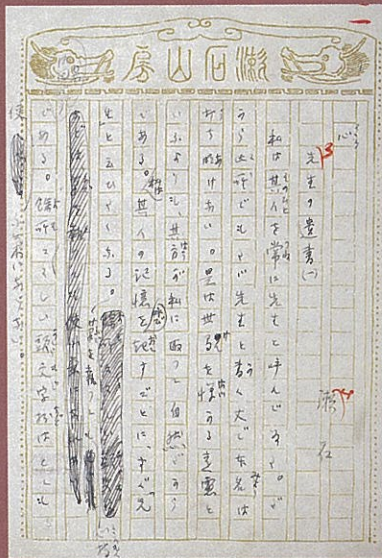 漱石山房
一
心
先生の遺書(一)
漱石
私は其人を常に先生と呼んでゐた。だ
から此所でもたゞ先生と書く丈で本名は
打ち明けない。是は世間を憚かる遠慮と
いふよりも、其方が私に取つて自然だから
である。私は其人の記憶を呼び起すごとにすぐ先
生と云ひたくなる。
筆を執つても
である。余所々々しい頭文字抔はとても
使ふ気にならない。